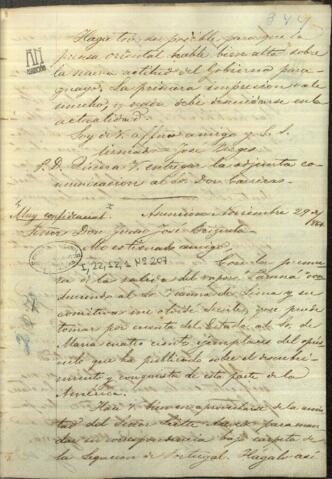 344
Haga todo su posible para que la
prensa oriental hable bien alto sobre
la nueva actitud del Gobierno para-
guayo. La primera impresion vale
mucho, y nada debe descuidarse en la
actualidad.
Soy de V. affmo amigo y S. S.
firmado José Berges
P. D. Quiera V. entregar la adjunta co-
municacion al Sr. Don Carreras.
"Muy confidencial" Asuncion Noviembre 29 de
Señor Don Juan José Brizuela
Mi estimado amigo.
I, 22, 12, 1 Nº 207
Con la premura
de la salida del vapor con-
duciendo al Sr. Vianna de Lima y su
comitiva me olvidé decirle, que puede
tomar por cuenta del Estado, al Sr. de
Maria cuatro cientos ejemplares del opus-
culo que ha publicado sobre el descubri-
miento y conquista de esta parte de la
América.
Hará V. bien en aprovecharse de la amis-
tad del Señor Leite para man-
dar su correspondencia bajo carpeta de
la Legacion de Portugal. Hagalo asi